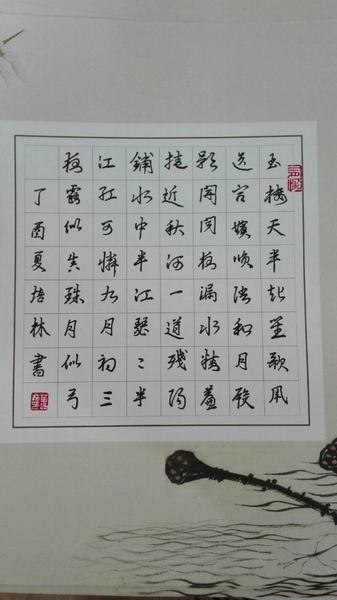 玉楼天半起笙歌风
送宫嫔笑语和月殿
影开闻夜漏水精帘
捲近秋河一道残阳
铺水中半江瑟〻半
江红可憐九月初三
夜露似真珠月似弓
丁酉夏培林書